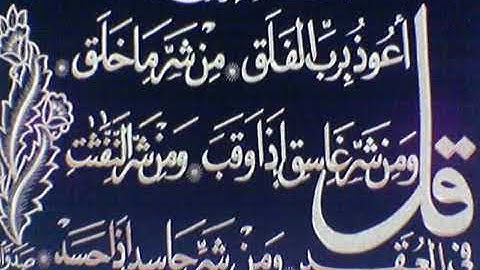 قل أَعُوذُ بِرَبِّ الفَلَقِ * مِن شَرِّ مَا خَلَقَ *
وَمِن شَرِّ غَاسِقٍ إِذَا وَقَبَ * وَمِن شَرِّ النَّفّٰثٰتِ
فِي العُقَدِ وَمِن شَرِّ حَاسِدٍ إِذَا حَسَدَ *